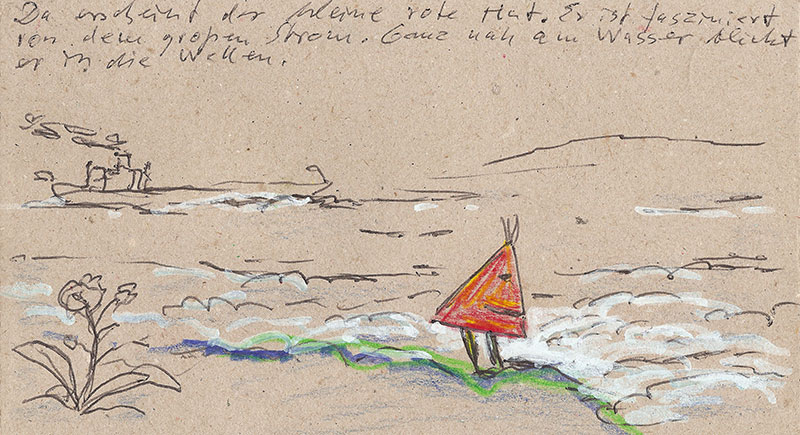 Da erscheint der kleine rote Hut. Er ist fasziniert
von dem großen Strom. Ganz nah am Wasser blickt
er in die Wellen.